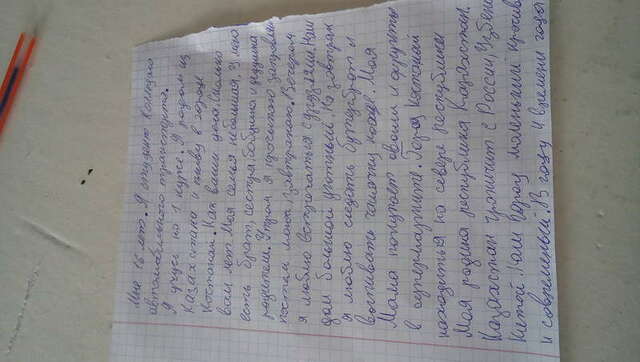 Мне 16 лет. Я студент Колледжа
автомобильного транспорта.
Я учусь на 1 курсе. Я родом из
Казахстана и живу в городе
Костанай. Как ваши дела. Сколько
вам лет. Моя семья небольшая. У меня
есть брат, сестра, бабушка и дедушка
родители. Утром я просыпаюсь заправляю
постель моюсь, завтракаю. Вечером
я люблю встречаться с друзьями. Наш
дом большой уютный. На завтрак
я люблю сьедать бутерброт и
выпивать чашечку кофе. Моя
Мама покупает овощи и фрукты
в супермаркете. Город Костанай
находиться на севере республики
Моя родина республика Казахстан.
Казахстан граничит с Россией,
Китай. Наш город маленький
и современый. В году 4 времени года